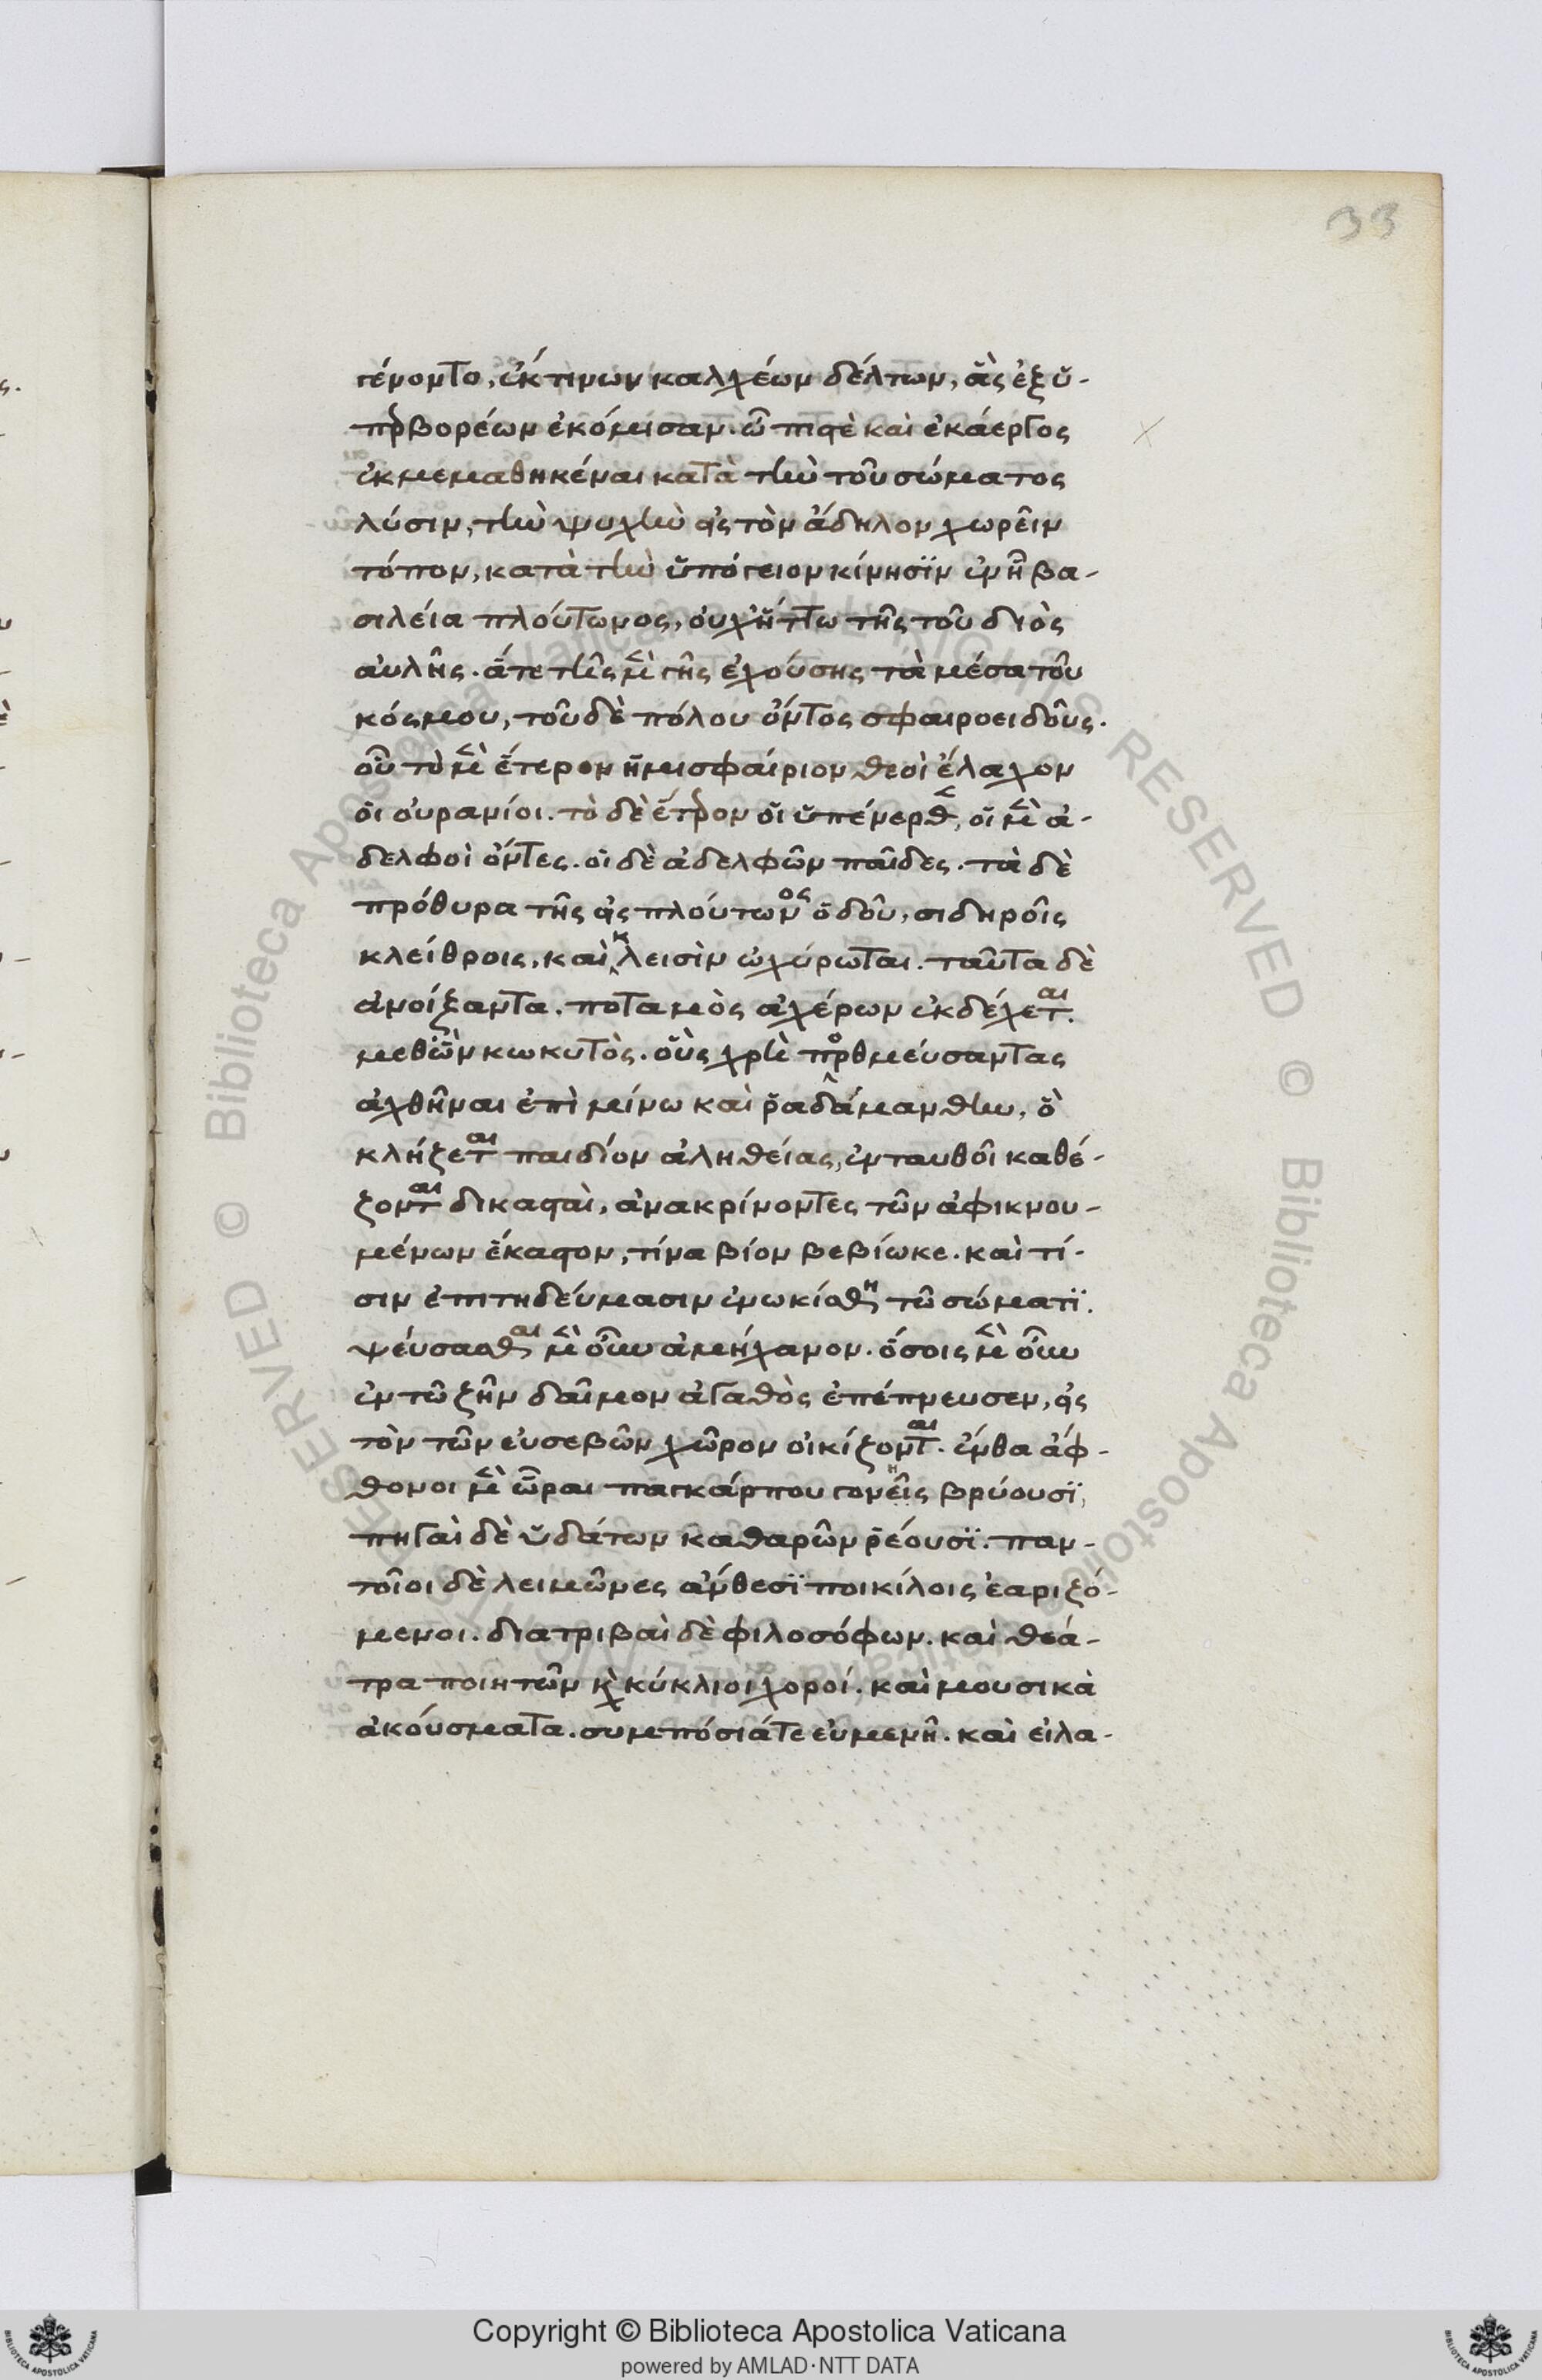 33
γένοντο, ἐκ τινων καλχέων δέλτων, ἃς ἐξ ὑ-
περβορέων ἐκόμισαν. ὦπίς τε καὶ ἑκάεργος
ἐκμεμαθηκέναι κατὰ τὴν τοῦ σώματος
λύσιν, τὴν ψυχὴν εἰς τὸν ἄδηλον χωρεῖν
τόπον, κατὰ τὴν ὑπόγειον κίνησϊν ἐν ἧ βα-
σιλεία πλούτωνος, οὐχ ἥττω τῆς τοῦ διὸς
αὐλῆς. ἅτε τῆς μὲν γῆς ἐχούσης τὰ μέσα τοῦ
κόσμου, τοῦ δὲ πόλου ὄντος σφαιροειδοῦς.
οὗ τὸ μὲν ἕτερον ἡμισφαίριον θεοὶ ἔλαχον
οἱ οὐρανίοι. τὸ δὲ ἕτερον οἱ ὑπένερθεν, οἱ μὲν ἀ-
δελφοὶ ὄντες. οἱ δὲ ἀδελφῶν παῖδες. τὰ δὲ
πρόθυρα τῆς εἰς πλούτωνος ὁδοῦ, σιδηροῖς
κλείθροις, καὶ κλεισὶν ὠχύρωται. ταῦτα δὲ
ἀνοίξαντα. ποταμὸς ἀχέρων ἐκδέχεται.
μεθ ὃν κωκυτὸς. οὓς χρὴ πορθμεύσαντας
ἀχθῆναι ἐπὶ μίνω καὶ ῥαδάμανθην, ὃ
κλήζεται παιδίον ἀληθείας, ἐνταυθοῖ καθέ-
ζονται δικασταὶ, ἀνακρίνοντες τῶν ἀφικνου-
μένων ἕκαστον, τίνα βίον βεβίωκε. καὶ τί-
σιν ἐπιτηδεύμασιν ἐνωκίσθη τῶ σώματϊ.
ψεύσασθαι μὲν οὖν ἀμήχανον. ὅσοις μὲν οὖν
ἐν τῶ ζῆν δαῖμον ἀγαθὸς ἐπέπνευσεν, εἰς
τὸν τῶν εὐσεβῶν χῶρον οἰκίζονται. ἔνθα ἄφ-
θονοι μὲν ὧραι παγκάρπου γονεῖης βρύουσϊ,
πηγαὶ δὲ ὑδάτων καθαρῶν ῥέουσϊ. παν-
τοῖοι δὲ λειμῶνες ἄνθεσϊ ποικίλοις ἐαριζό-
μενοι. διατριβαὶ δὲ φιλοσόφων. καὶ θεά-
τρα ποιητῶν καὶ κύκλιοι χοροί. καὶ μουσικὰ
ἀκούσματα. συμπόσιάτε εὐμενῆ. καὶ εἰλα-
Copyright © Biblioteca Apostolica Vaticana
powered by AMLAD·NTT DATA